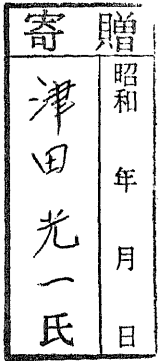 寄贈
昭和　年　月　日
津田光一氏